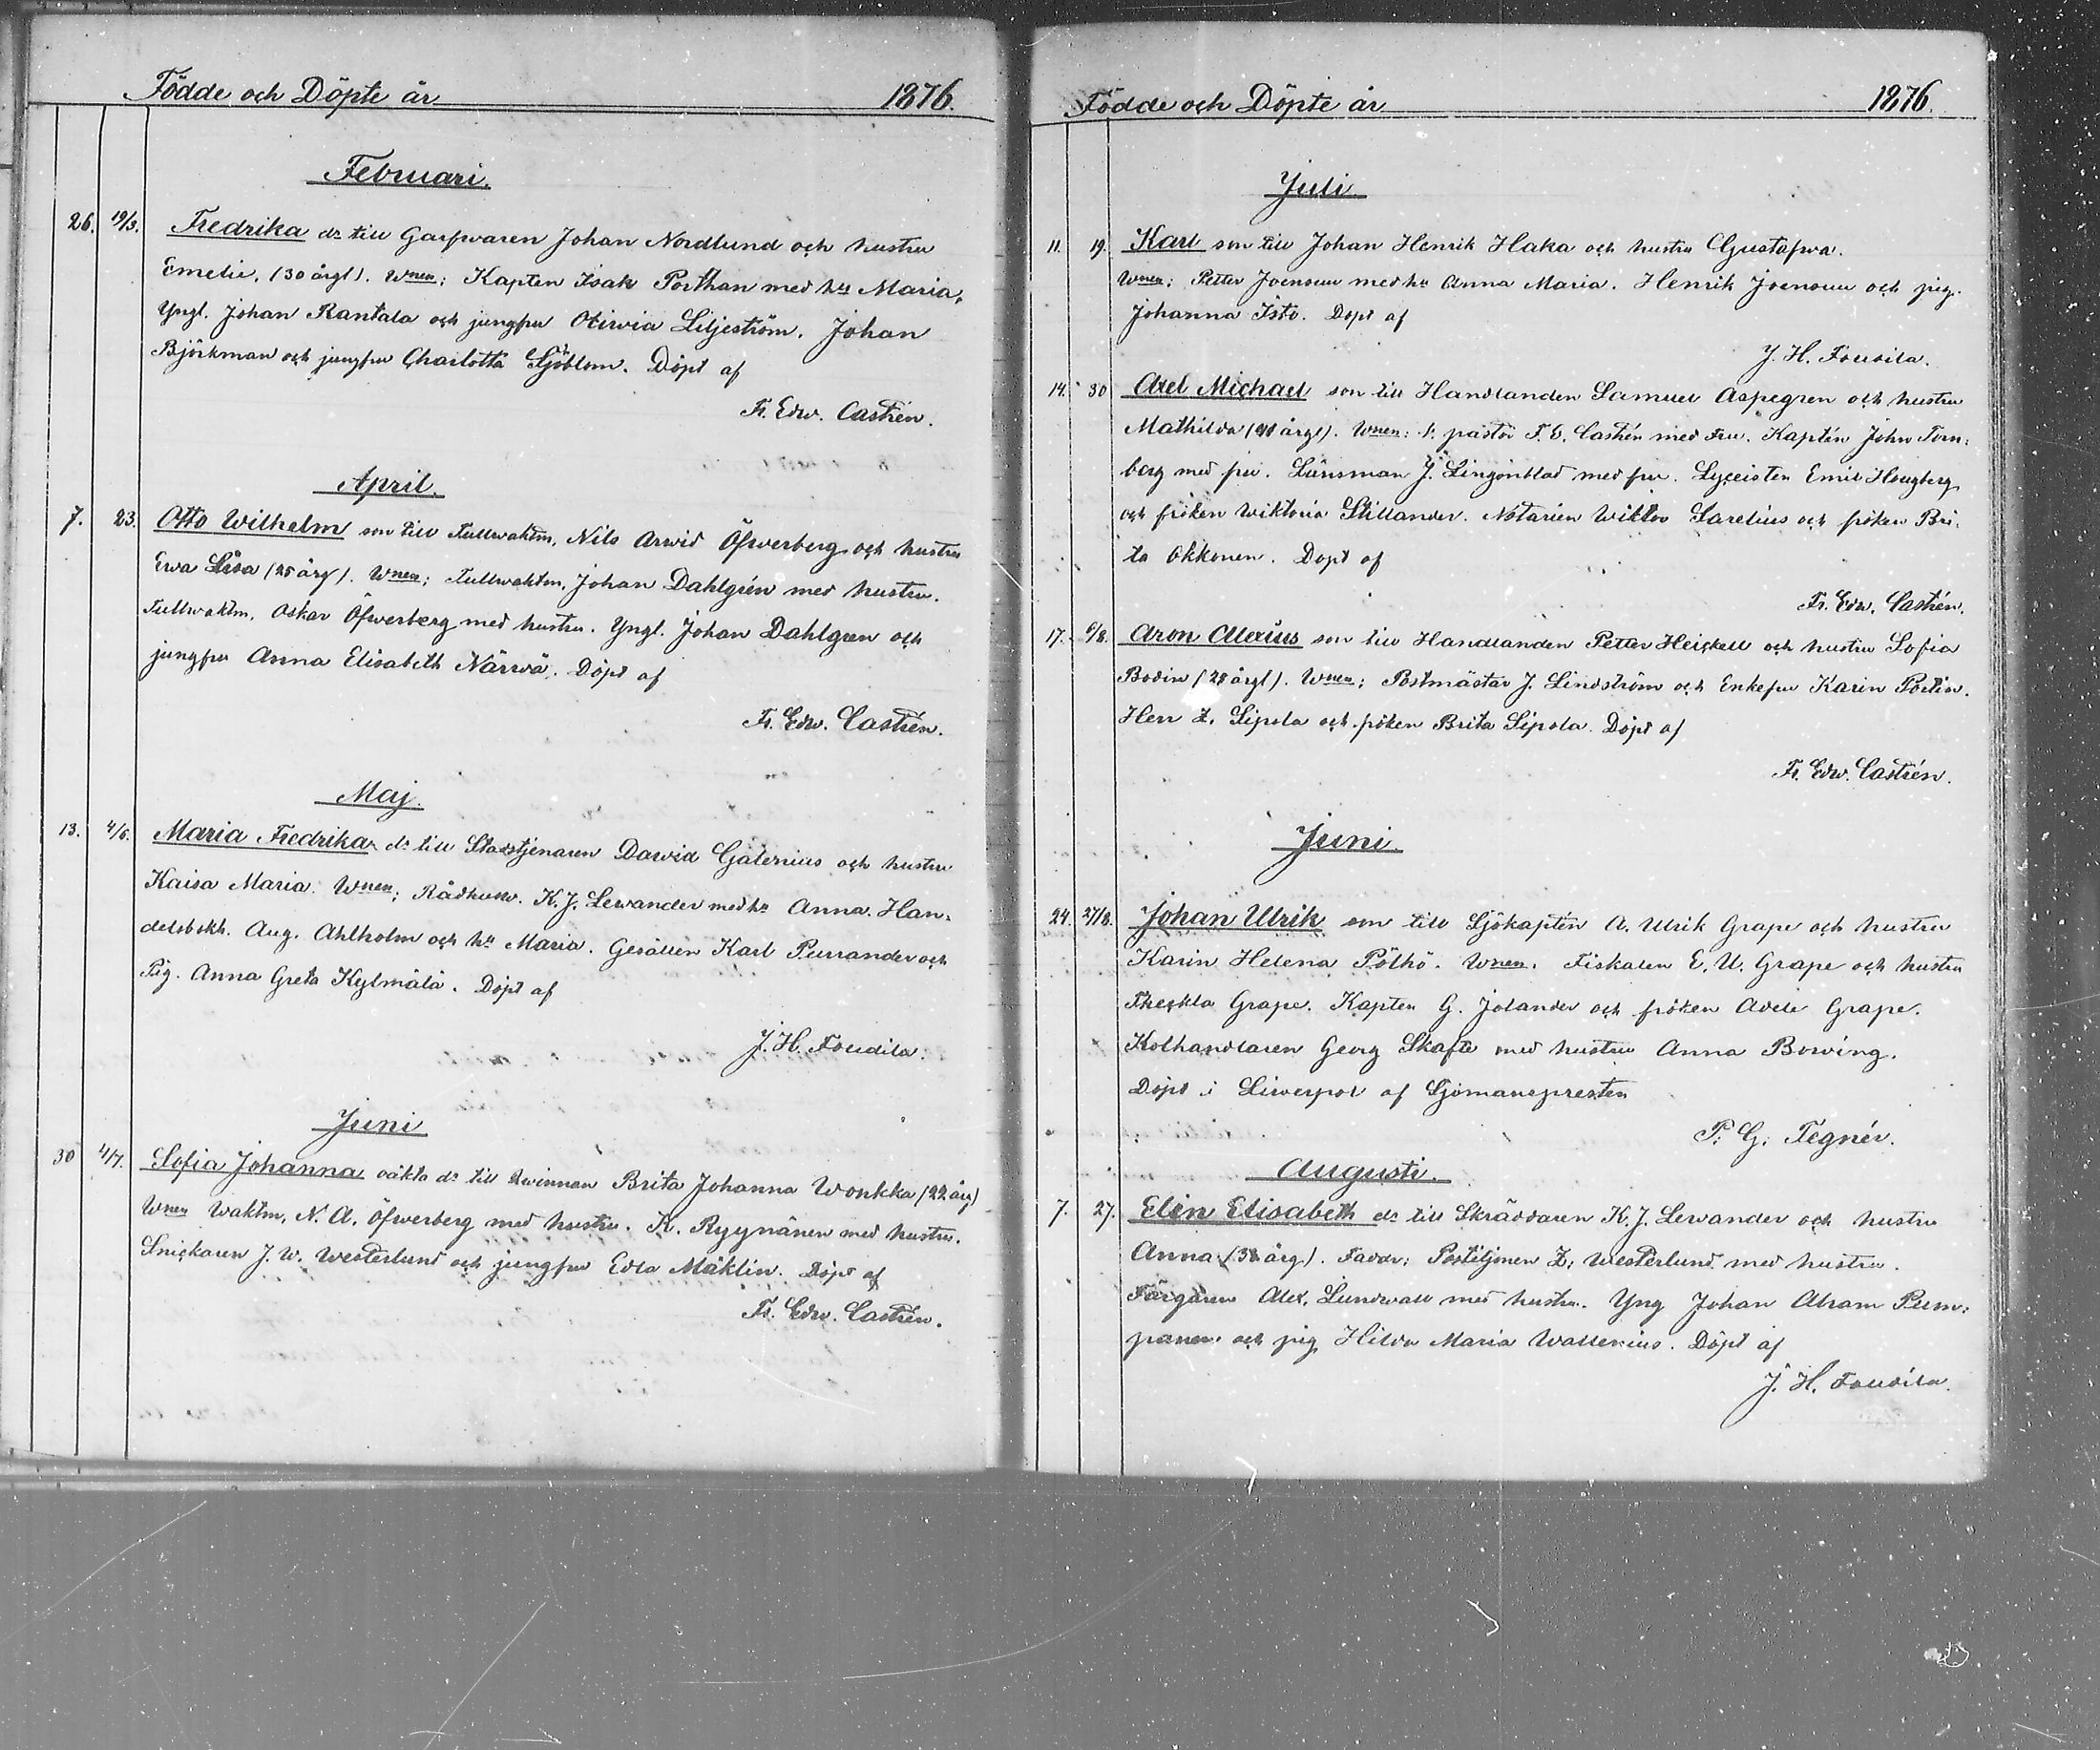 Födde och Döpte år 1876.
Februari.
26. 19/3. Fredrika dr till Garfwaren Johan Nordlund och hustru
Emelie, (30 årgl). Wnen: Kapten Isak Porthan med hu Maria,
Yngl. Johan Rantala och jungfru Oliwia Liljeström. Johan
Björkman och jungfru Charlotta Sjöblom. Döpt af
Fr. Edw. Castrén.
April.
7. 23. Otto Wilhelm son till Tullwaktm. Nils Arwid Öfwerberg och hustru
Ewa Lisa (25 årg). Wnen: Tullwaktm. Johan Dahlgrén med hustru.
Tullwaktm. Oskar Öfwerberg med hustru. Yngl. Johan Dahlgren och
jungfru Anna Elisabeth Närwä. Döpt af
Fr. Edw. Castrén.
Maj.
13. 4/6. Maria Fredrika dr till Stadstjenaren Dawid Galenius och hustru
Kaisa Maria. Wnen: K. J. Lewander med hu Anna. Han-
delsbokh. Aug. Ahlholm och hu Maria. Gesällen Karl Purrander och
Pig. Anna Greta Kylmälä. Döpt af
J. H. Foudila.
Juni
30 4/7. Sofia Johanna oäkta dr till Qwinnan Brita Johanna Wonkka (22 årg)
Wnen Waktm. N. A. Öfwerberg med hustru. K. Ryynänen med hustru.
Snickaren J. W. Westerlund och jungfru Edla Mäklin. Döpt af
Fr. Edw. Castrén.
Födde och Döpte år 1876.
Juli
11. 19. Karl son till Johan Henrik Haka och hustru Gustafwa.
Wnen: Petter Joensuu med hu Anna Maria. Henrik Joensuu och pig.
Johanna Isto. Döpt af
J. H. Foudila.
14. 30 Axel Michael son till Handlanden Samuel Aspegren och hustru
Mathilda (40 årgl). Wnen: V. pastor F. E. Castrén med Fru. Kaptén John Torn-
berg med fru. Länsman J. Lingonblad med fru. Lyceisten Emil Hougberg
och fröken Wiktoria Stillander. Notarien Wiktor Sarelius och fröken Bri-
ta Okkonen. Döpt af
Fr. Edw. Castrén.
17. 6/8. Aron Alexius son till Handlanden Petter Heickell och hustru Sofia
Bodin (28 årgl). Wnen: Postmästar J. Lindström och Enkefru Karin Polin.
Herr Z. Sipola och fröken Brita Sipola. Döpt af
Fr. Edw. Castrén.
Juni.
24. 27/8. Johan Ulrik son till Sjökapten A. Ulrik Grape och hustru
Karin Helena Pölhö. Wnen. Fiskalen E. U. Grape och hustru
Theckla Grape. Kapten G. Jolander och fröken Adele Grape.
Kolhandlaren Georg Skafte med hustru Anna Bowing.
Döpt i Liwerpol af Sjömanspresten
P. G. Tegnér.
Augusti.
7. 27. Elin Elisabeth dr till Skräddaren K. J. Lewander och hustru
Anna (38 årg). Faddr: Postiljonen Z. Westerlund med hustru.
Färgaren Alex. Lundwall med hustru. Yng Johan Abram Pum-
panen och pig Hilda Maria Wallenius. Döpt af
J. H. Foudila.